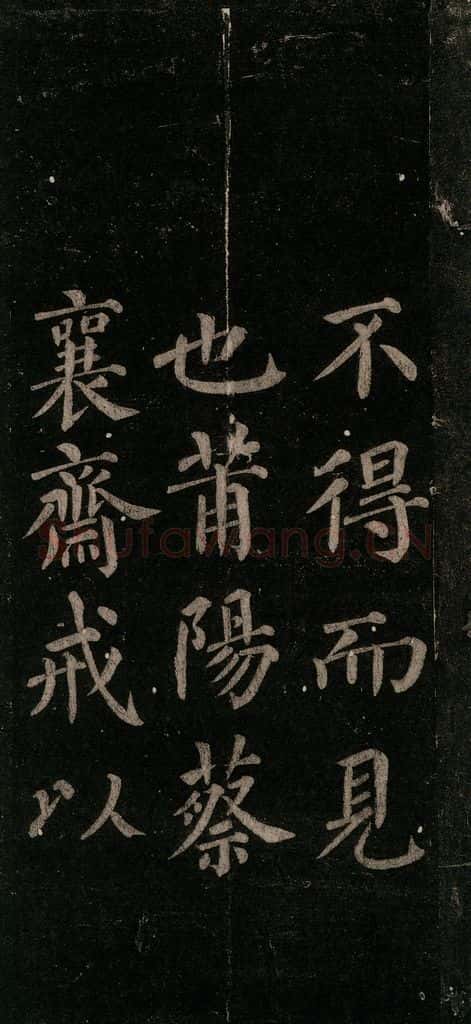 不得而見
也莆陽蔡
襄齋戒以
Shufawang.CN